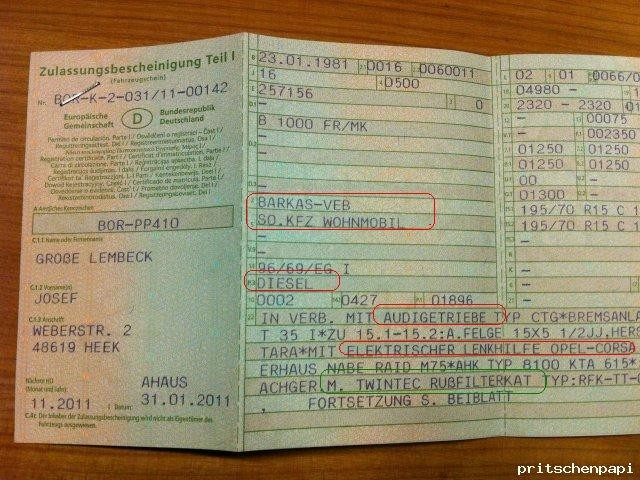 Zulassungsbescheinigung Teil I
(Fahrzeugschein)
Nr. BOR-K-2-031/11-00142
Europäische Gemeinschaft
D
Bundesrepublik Deutschland
A Amtliches Kennzeichen
BOR-PP410
C.1.1 Name oder Firmenname
GROßE LEMBECK
C.1.2 Vorname(n)
JOSEF
C.1.3 Anschrift
WEBERSTR. 2
48619 HEEK
Nächste HU
(Monat und Jahr)
AHAUS
11.2011
Datum:
31.01.2011
C.4c Der Inhaber der Zulassungsbescheinigung wird nicht als Eigentümer des Fahrzeugs ausgewiesen.
23.01.1981 0016 0060011
16 0500
257156 0
-
B 1000 FR/MK
-
-
BARKAS-VEB
SO.KFZ WOHNMOBIL
-
-
96/69/EG I
DIESEL
0002 0427 01896
IN VERB. MIT AUDIGETRIEBE TYP CTG*BREMSANLA
T 35 I*ZU 15.1-15.2:A.FELGE 15X5 1/2JJ.HERS
TARA*MIT ELEKTRISCHER LENKHILFE OPEL-CORSA
ERHAUS NABE RAID M75*AHK TYP 8100 KTA 615*
ACHGER M. TWINTEC RUßFILTERKAT TYP:RFK-TT-
, FORTSETZUNG S. BEIBLATT
02 01 0066/0
04980 -
2320 - 2320
- 00075
- 002350
01250 01250 0
01250 01250 0
00 -
01300 -
195/70 R15 C 1
195/70 R15 C 1
-
-
pritschenpapi